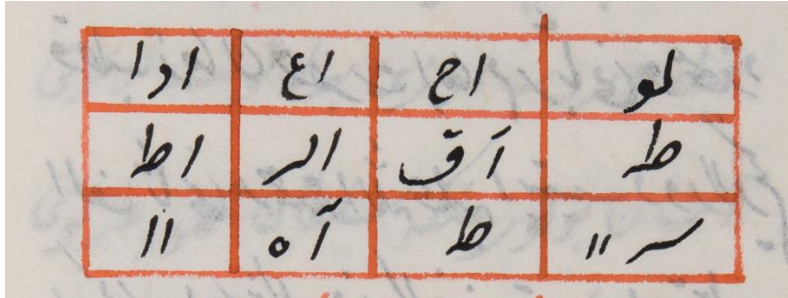 لو اح اع ادا
ط اق الر اط
سر اا ط آه اا